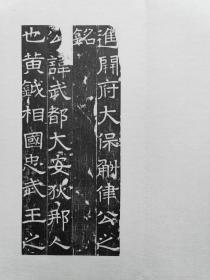 進開府大保斛律公之
銘
公諱武都大安狄那人
也黃鉞相國忠武王之